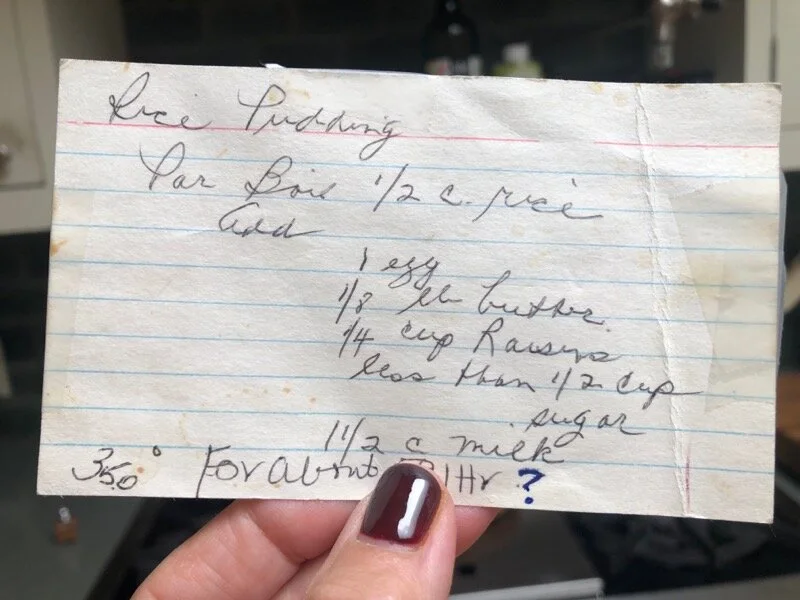 Rice Pudding
Par Boil 1/2 c. rice
add
1 egg
1/8 lb butter.
1/4 cup Raisins
less than 1/2 cup
sugar
1 1/2 c milk
350° For about 1 Hr ?